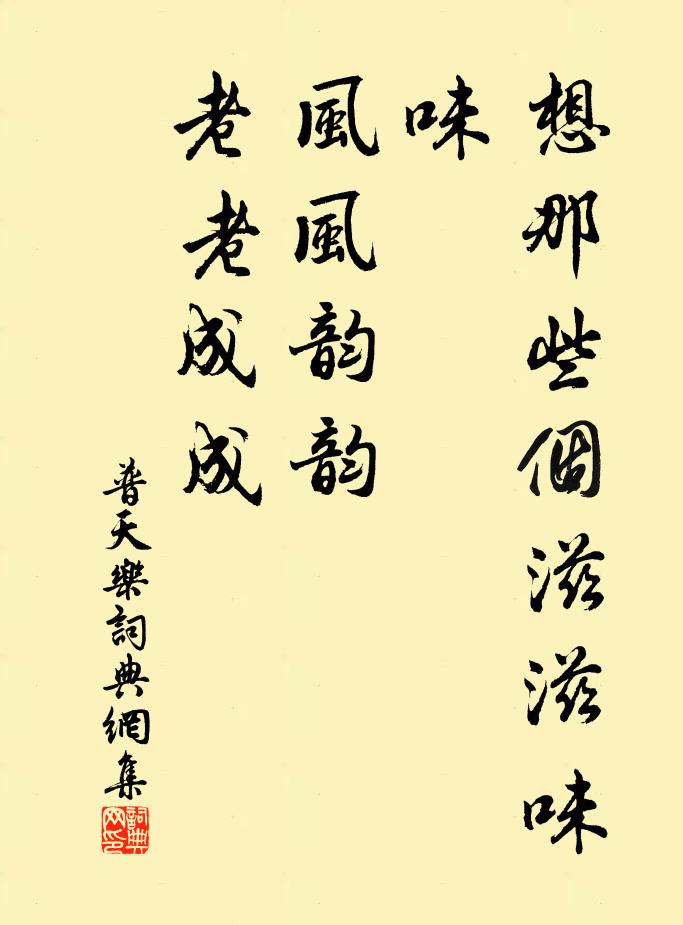 想那些個滋滋味
味
風風韵韵
老老成成
普天樂詞典網集
詞典网印